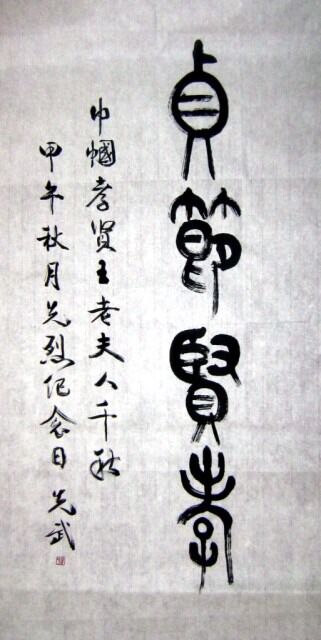 貞節賢孝
巾帼孝贤王老夫人千秋
甲午秋月先烈纪念日 先武